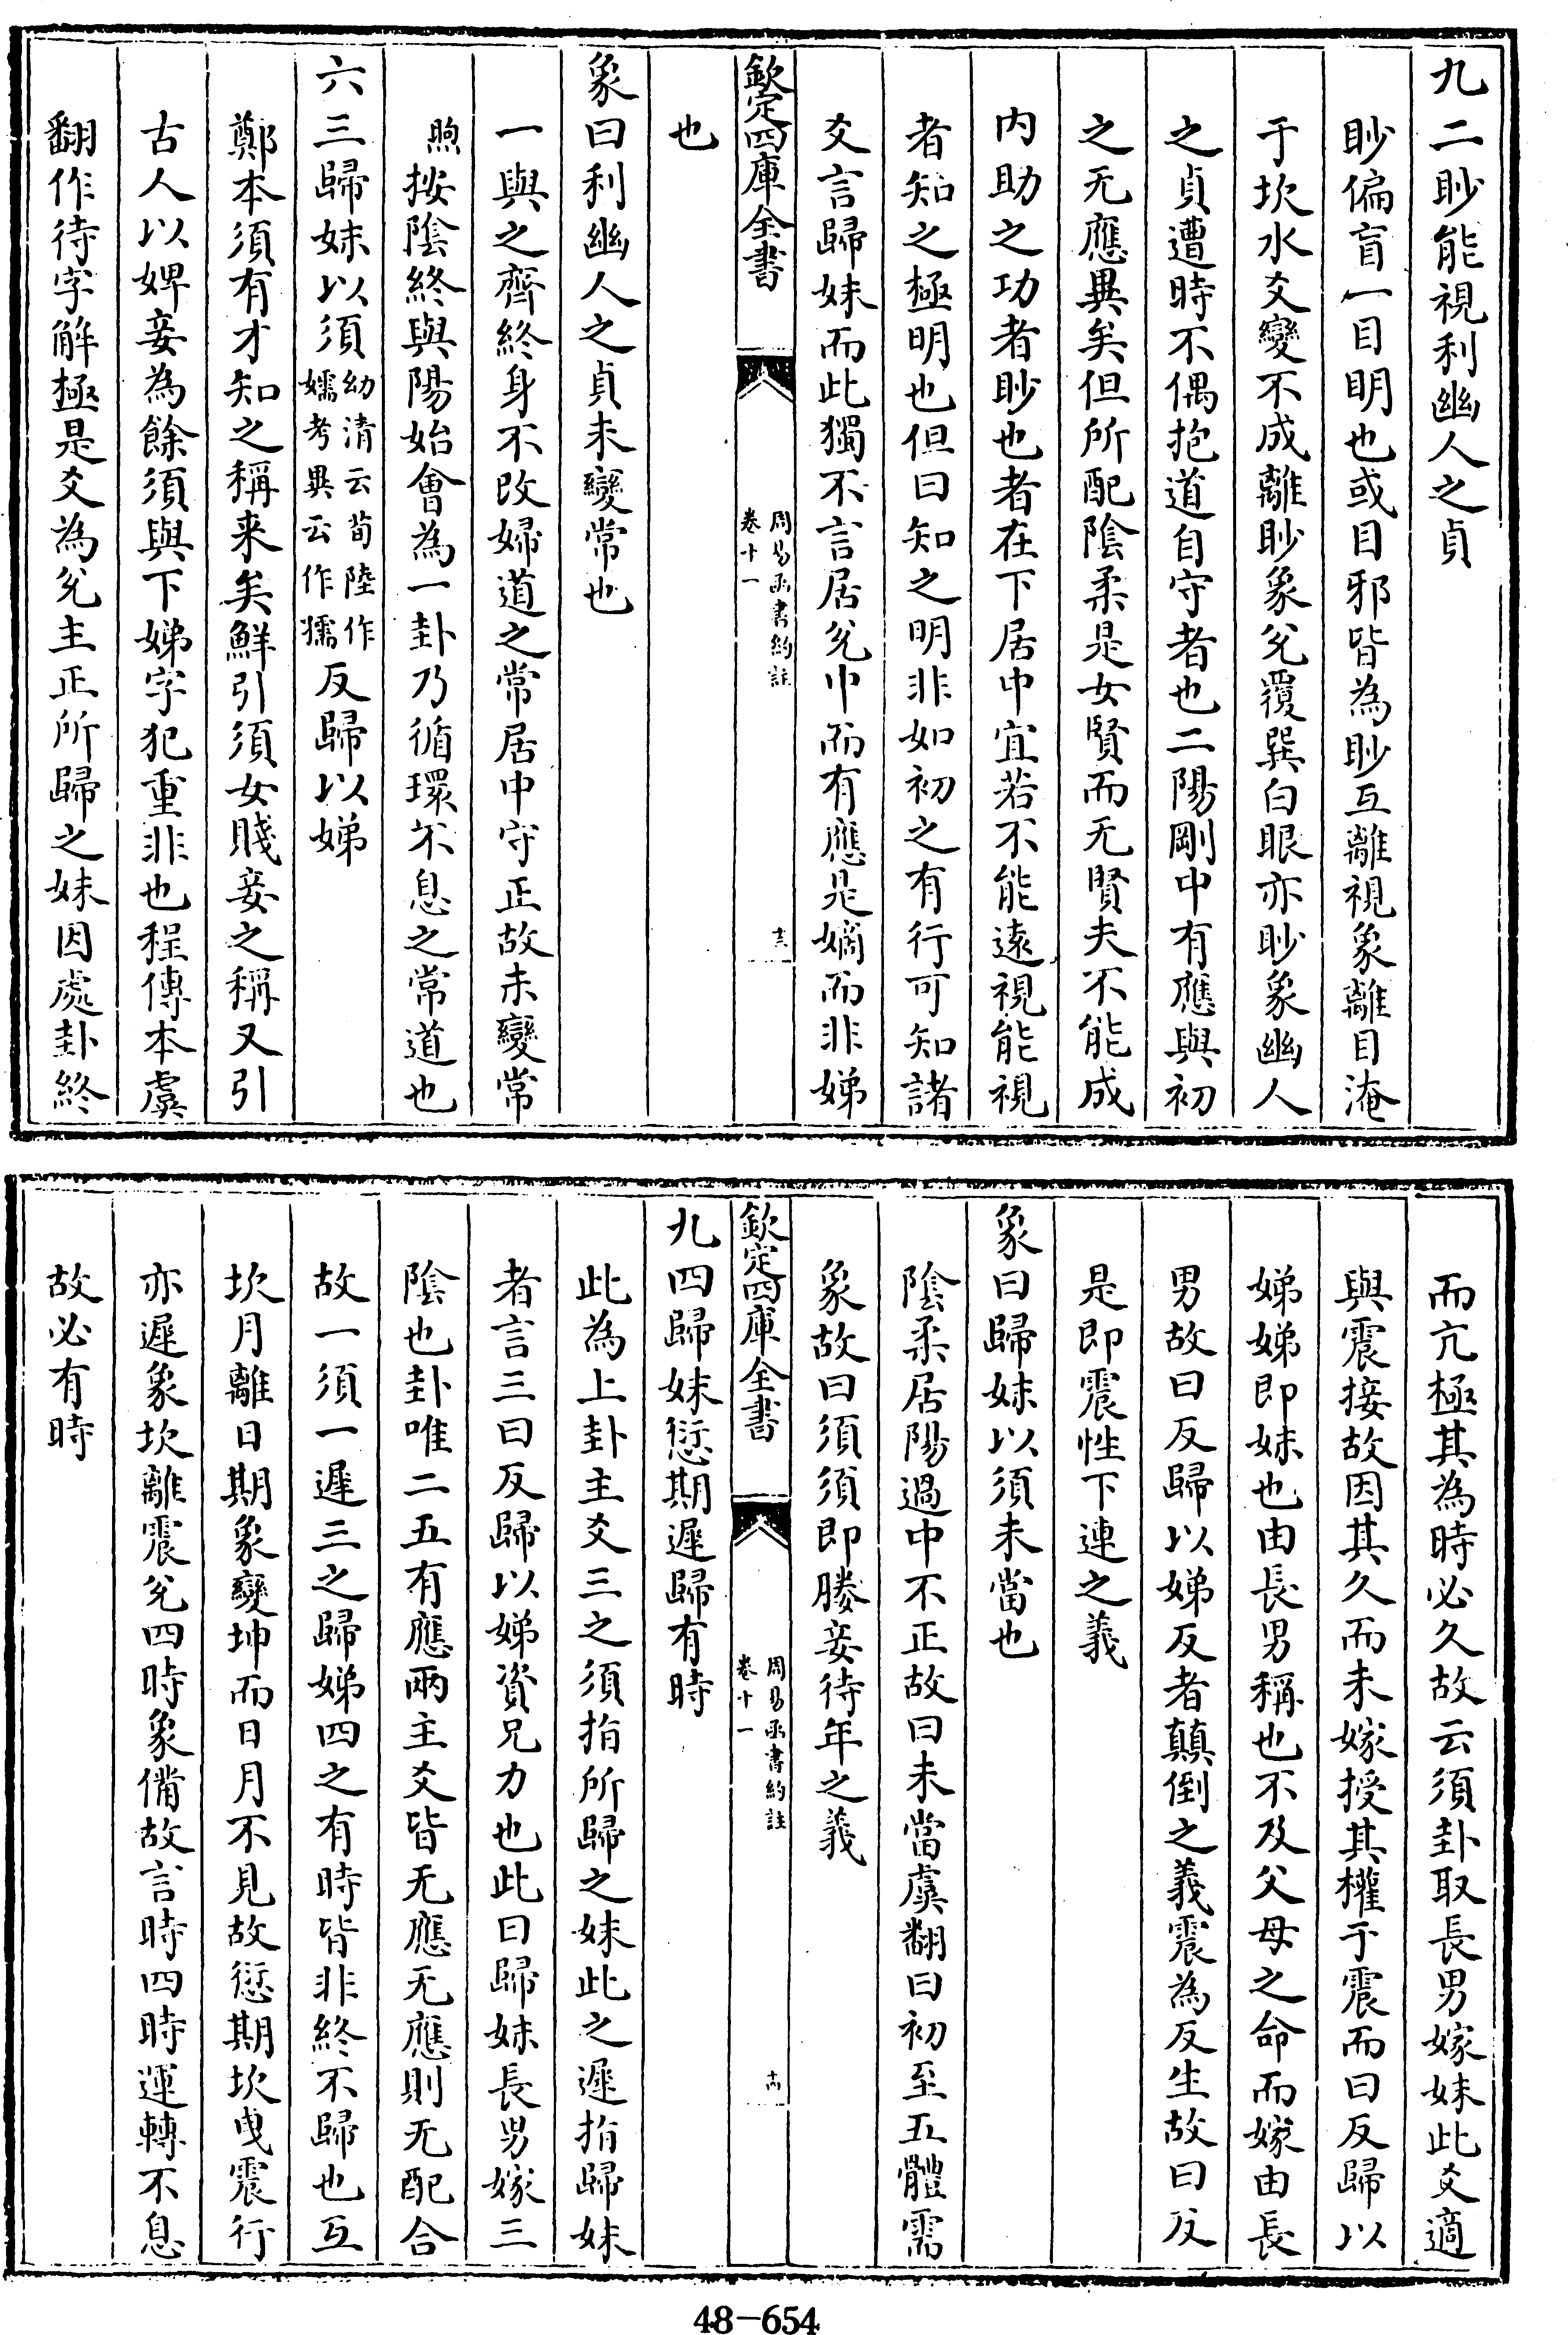 九二眇能視利幽人之貞
眇偏盲一目明也或目邪皆為眇互離視象離目淹
于坎水爻變不成離眇象兊覆巽白眼亦眇象幽人
之貞遭時不偶抱道自守者也二陽剛中有應與初
之无應異矣但所配陰柔是女賢而无賢夫不能成
内助之功者眇也者在下居中宜若不能遠視能視
者知之極明也但曰知之明非如初之有行可知諸
爻言歸妹而此獨不言居兊中而有應是嫡而非娣
欽定四庫全書
周易函書約註
卷十一
十三
也
象曰利幽人之貞未變常也
一與之齊終身不改婦道之常居中守正故未變常
煦按陰終與陽始會為一卦乃循環不息之常道也
六三歸妹以須幼清云荀陸作嬬考異云作㺞反歸以娣
鄭本須有才知之稱来矣鮮引須女賤妾之稱又引
古人以婢妾為餘須與下娣字犯重非也程傳本虞
翻作待字解極是爻為兊主正所歸之妹因處卦終
而亢極其為時必久故云須卦取長男嫁妹此爻適
與震接故因其久而未嫁授其權于震而曰反歸以
娣娣即妹也由長男稱也不及父母之命而嫁由長
男故曰反歸以娣反者顛倒之義震為反生故曰反
是即震性下連之義
象曰歸妹以須未當也
陰柔居陽過中不正故曰未當虞翻曰初至五體需
象故曰須須即媵妾待年之義
欽定四庫全書
周易函書約註
卷十一
十四
九四歸妹愆期遲歸有時
此為上卦主爻三之須指所歸之妹此之遲指歸妹
者言三曰反歸以娣資兄力也此曰歸妹長男嫁三
陰也卦唯二五有應兩主爻皆无應无應則无配合
故一須一遲三之歸娣四之有時皆非終不歸也互
坎月離日期象變坤而日月不見故愆期坎曳震行
亦遲象坎離震兊四時象備故言時四時運轉不息
故必有時
48-654